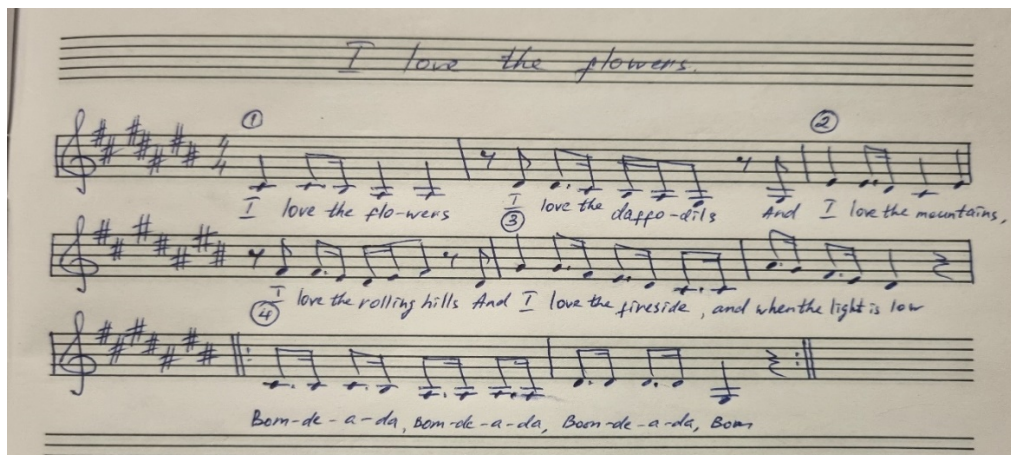 I love the flowers.
① ②
I love the flo-wers I love the daffo-dils And I love the mountains,
③
I love the rolling hills And I love the fireside, and when the light is low
④
Bom-de-a-da, Bom-de-a-da, Boom-de-a-da, Bom